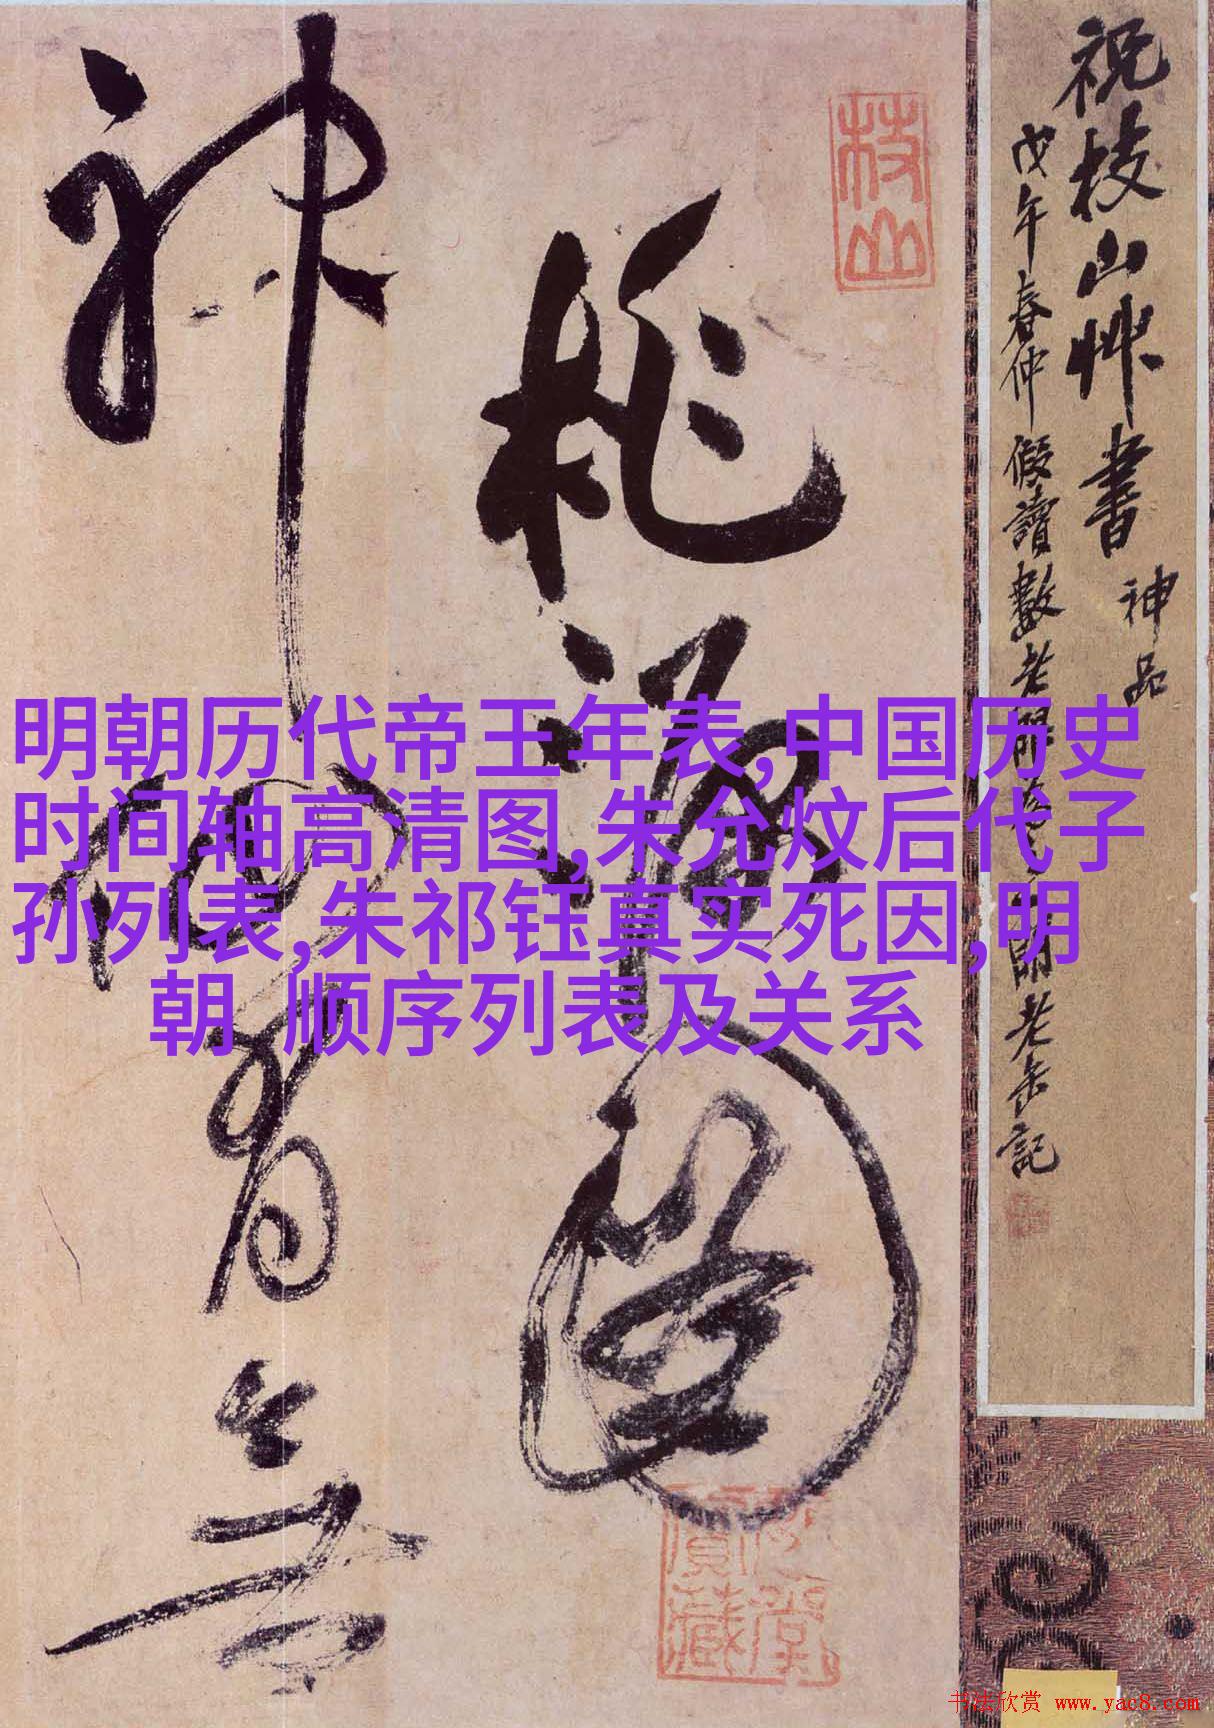 祝枝山艸書
神品
戊午春仲假讀數
老缶記
枝山
桃源圖
神仙有無
明朝历代帝王年表,中国历史
时间轴高清图,朱允炆后代子
孙列表,朱祁钰真实死因,明
朝 顺序列表及关系
书法欣赏 www.yac8.com